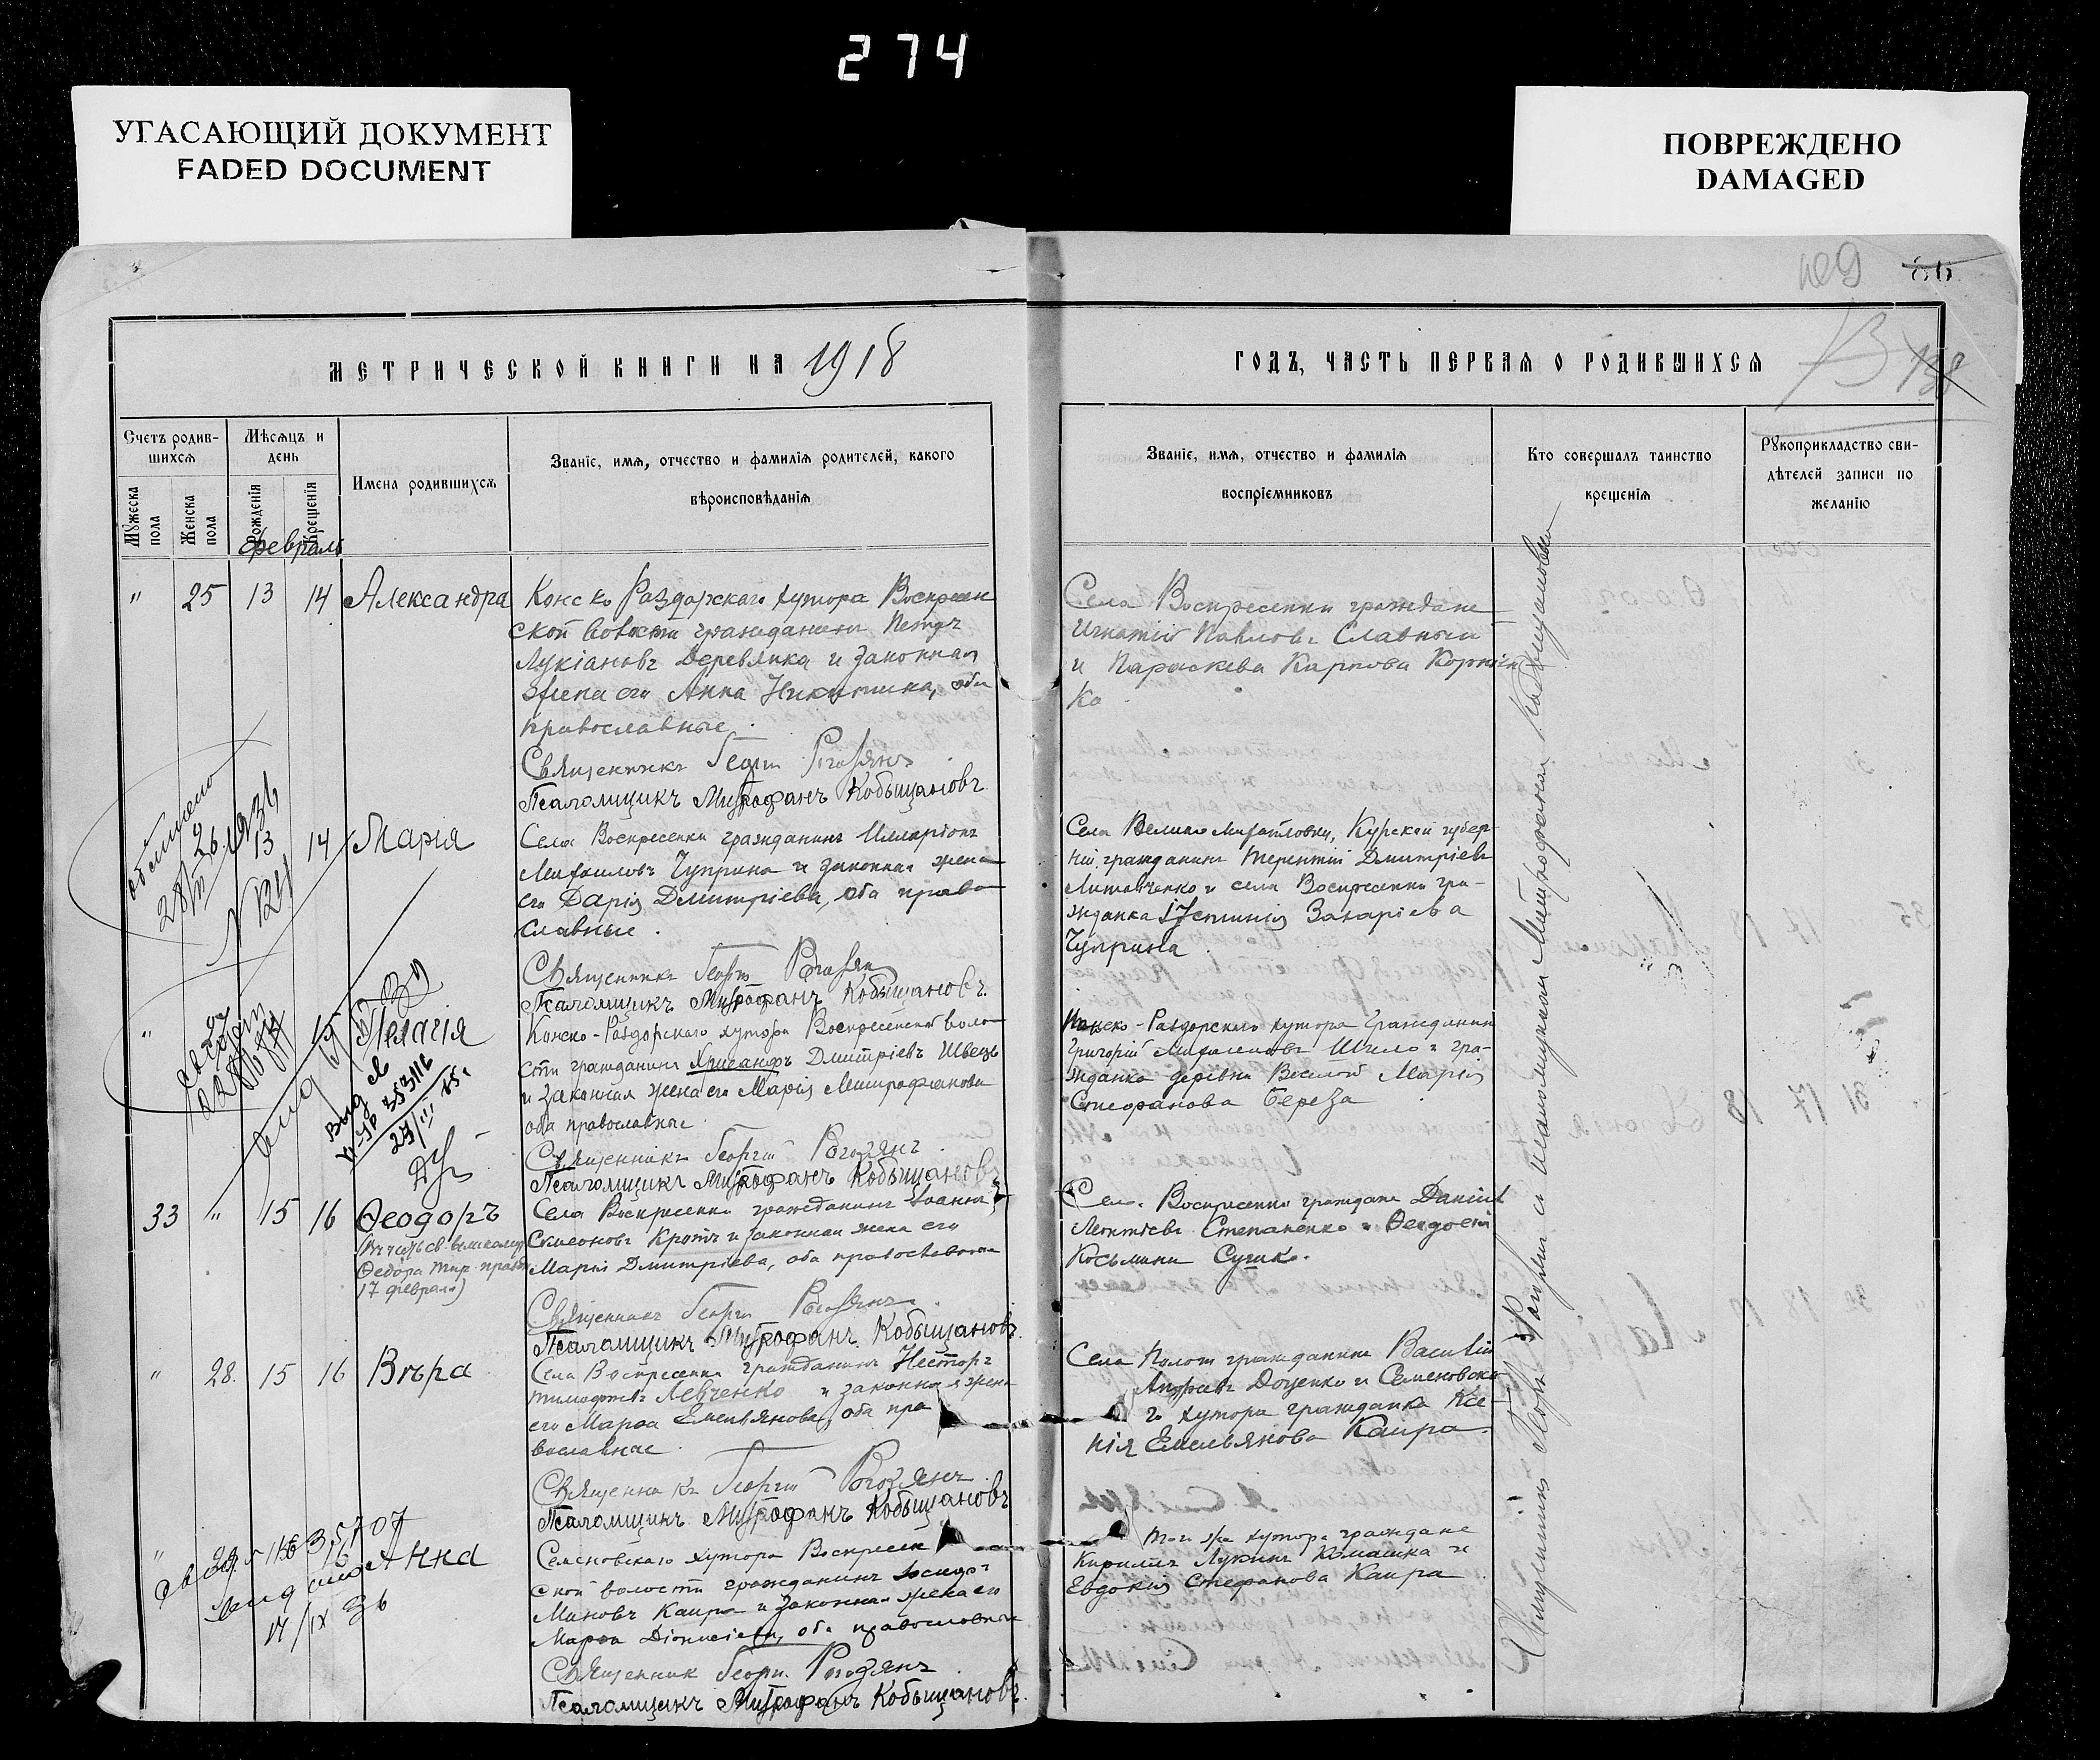 274
УГАСАЮЩИЙ ДОКУМЕНТ
FADED DOCUMENT
ПОВРЕЖДЕНО
DAMAGED
109 86
МЕТРИЧЕСКОЙ КНИГИ НА 1918
ГОДЪ, ЧАСТЬ ПЕРВАЯ О РОДИВШИХСЯ
138
Счетъ родив-
шихся
Мѣсяцъ и
день
Имена родившихся
Званіе, имя, отчество и фамилія родителей, какого
вѣроисповѣданія
Мужеска пола
Женска пола
Рожденія
Крещенія
Званіе, имя, отчество и фамилія
воспріемниковъ
Кто совершалъ таинство
крещенія
Рукоприкладство сви-
дѣтелей записи по
желанію
февраль
" 25 13 14 Александра
Конско Раздорскаго хутора Воскресен
ской волости гражданинъ Петръ
Лукіановъ Деревянка и законная
жена его Анна Никитина, оба
православные.
Священникъ Георгій Рогозянъ
Псаломщикъ Митрофанъ Кобыщановъ
Села Воскресенки граждане
Игнатій Павловъ Славный
и Параскева Карпова Корніен
ко
26 13 14 Марія
Села Воскресенки гражданинъ Илларіонъ
Михаиловъ Чуприна и законная жена
его Дарія Дмитріева, оба право
славные.
Священникъ Георгій Рогозянъ
Псаломщикъ Митрофанъ Кобыщановъ.
Села Велико Михайловки, Курской губер-
ніи, гражданинъ Терентій Дмитріевъ
Литовченко и села Воскресенки гра-
жданка Іустинія Захаріева
Чуприна
" 27 Пелагія
Конско-Раздорскаго хутора Воскресенской воло
сти гражданинъ Хрисанфъ Дмитріевъ Швецъ
и законная жена его Марія Митрофанова
оба православные.
Священникъ Георгій Рогозянъ.
Псаломщикъ Митрофанъ Кобыщановъ
Конско-Раздорскаго хутора гражданинъ
Григорій Михаиловъ Шило и гра-
жданка деревни Веселой Марія
Стефанова Береза
33 " 15 16 Ѳеодоръ
(Въ честь св. великому
Ѳедора Тир. празн
17 февраля)
Села Воскресенки гражданинъ Іоаннъ
Симеоновъ Кротъ и законная жена его
Марія Дмитріева, оба православные
Священникъ Георгій Рогозянъ.
Псаломщикъ Митрофанъ Кобыщановъ.
Села Воскресенки граждане Даніилъ
Леонтіевъ Степаненко и Ѳеодосія
Косьмина Сушко.
" 28. 15 16 Вѣра
Села Воскресенки гражданинъ Несторъ
Тимофеевъ Левченко и законная жена
его Марѳа Емельянова, оба пра
вославные.
Священникъ Георгій Рогозянъ
Псаломщикъ Митрофанъ Кобыщановъ
Села Пологи гражданинъ Василій
Андреевъ Доценко и Семеновска
го хутора гражданка Ксе-
нія Емельянова Каира.
" 29. Анна
Семеновскаго хутора Воскресен
ской волости гражданинъ
Миновъ Каира и законная жена его
Марѳа Діонисіева, оба православные
Священник Георгій Рогозянъ
Псаломщикъ Митрофанъ Кобыщановъ.
Того же хутора граждане
Кириллъ Лукинъ Комашка и
Евдокія Стефанова Каира
Священникъ Георгій Рогозянъ съ псаломщикомъ Митрофаномъ Кобыщановымъ
17/IX 36